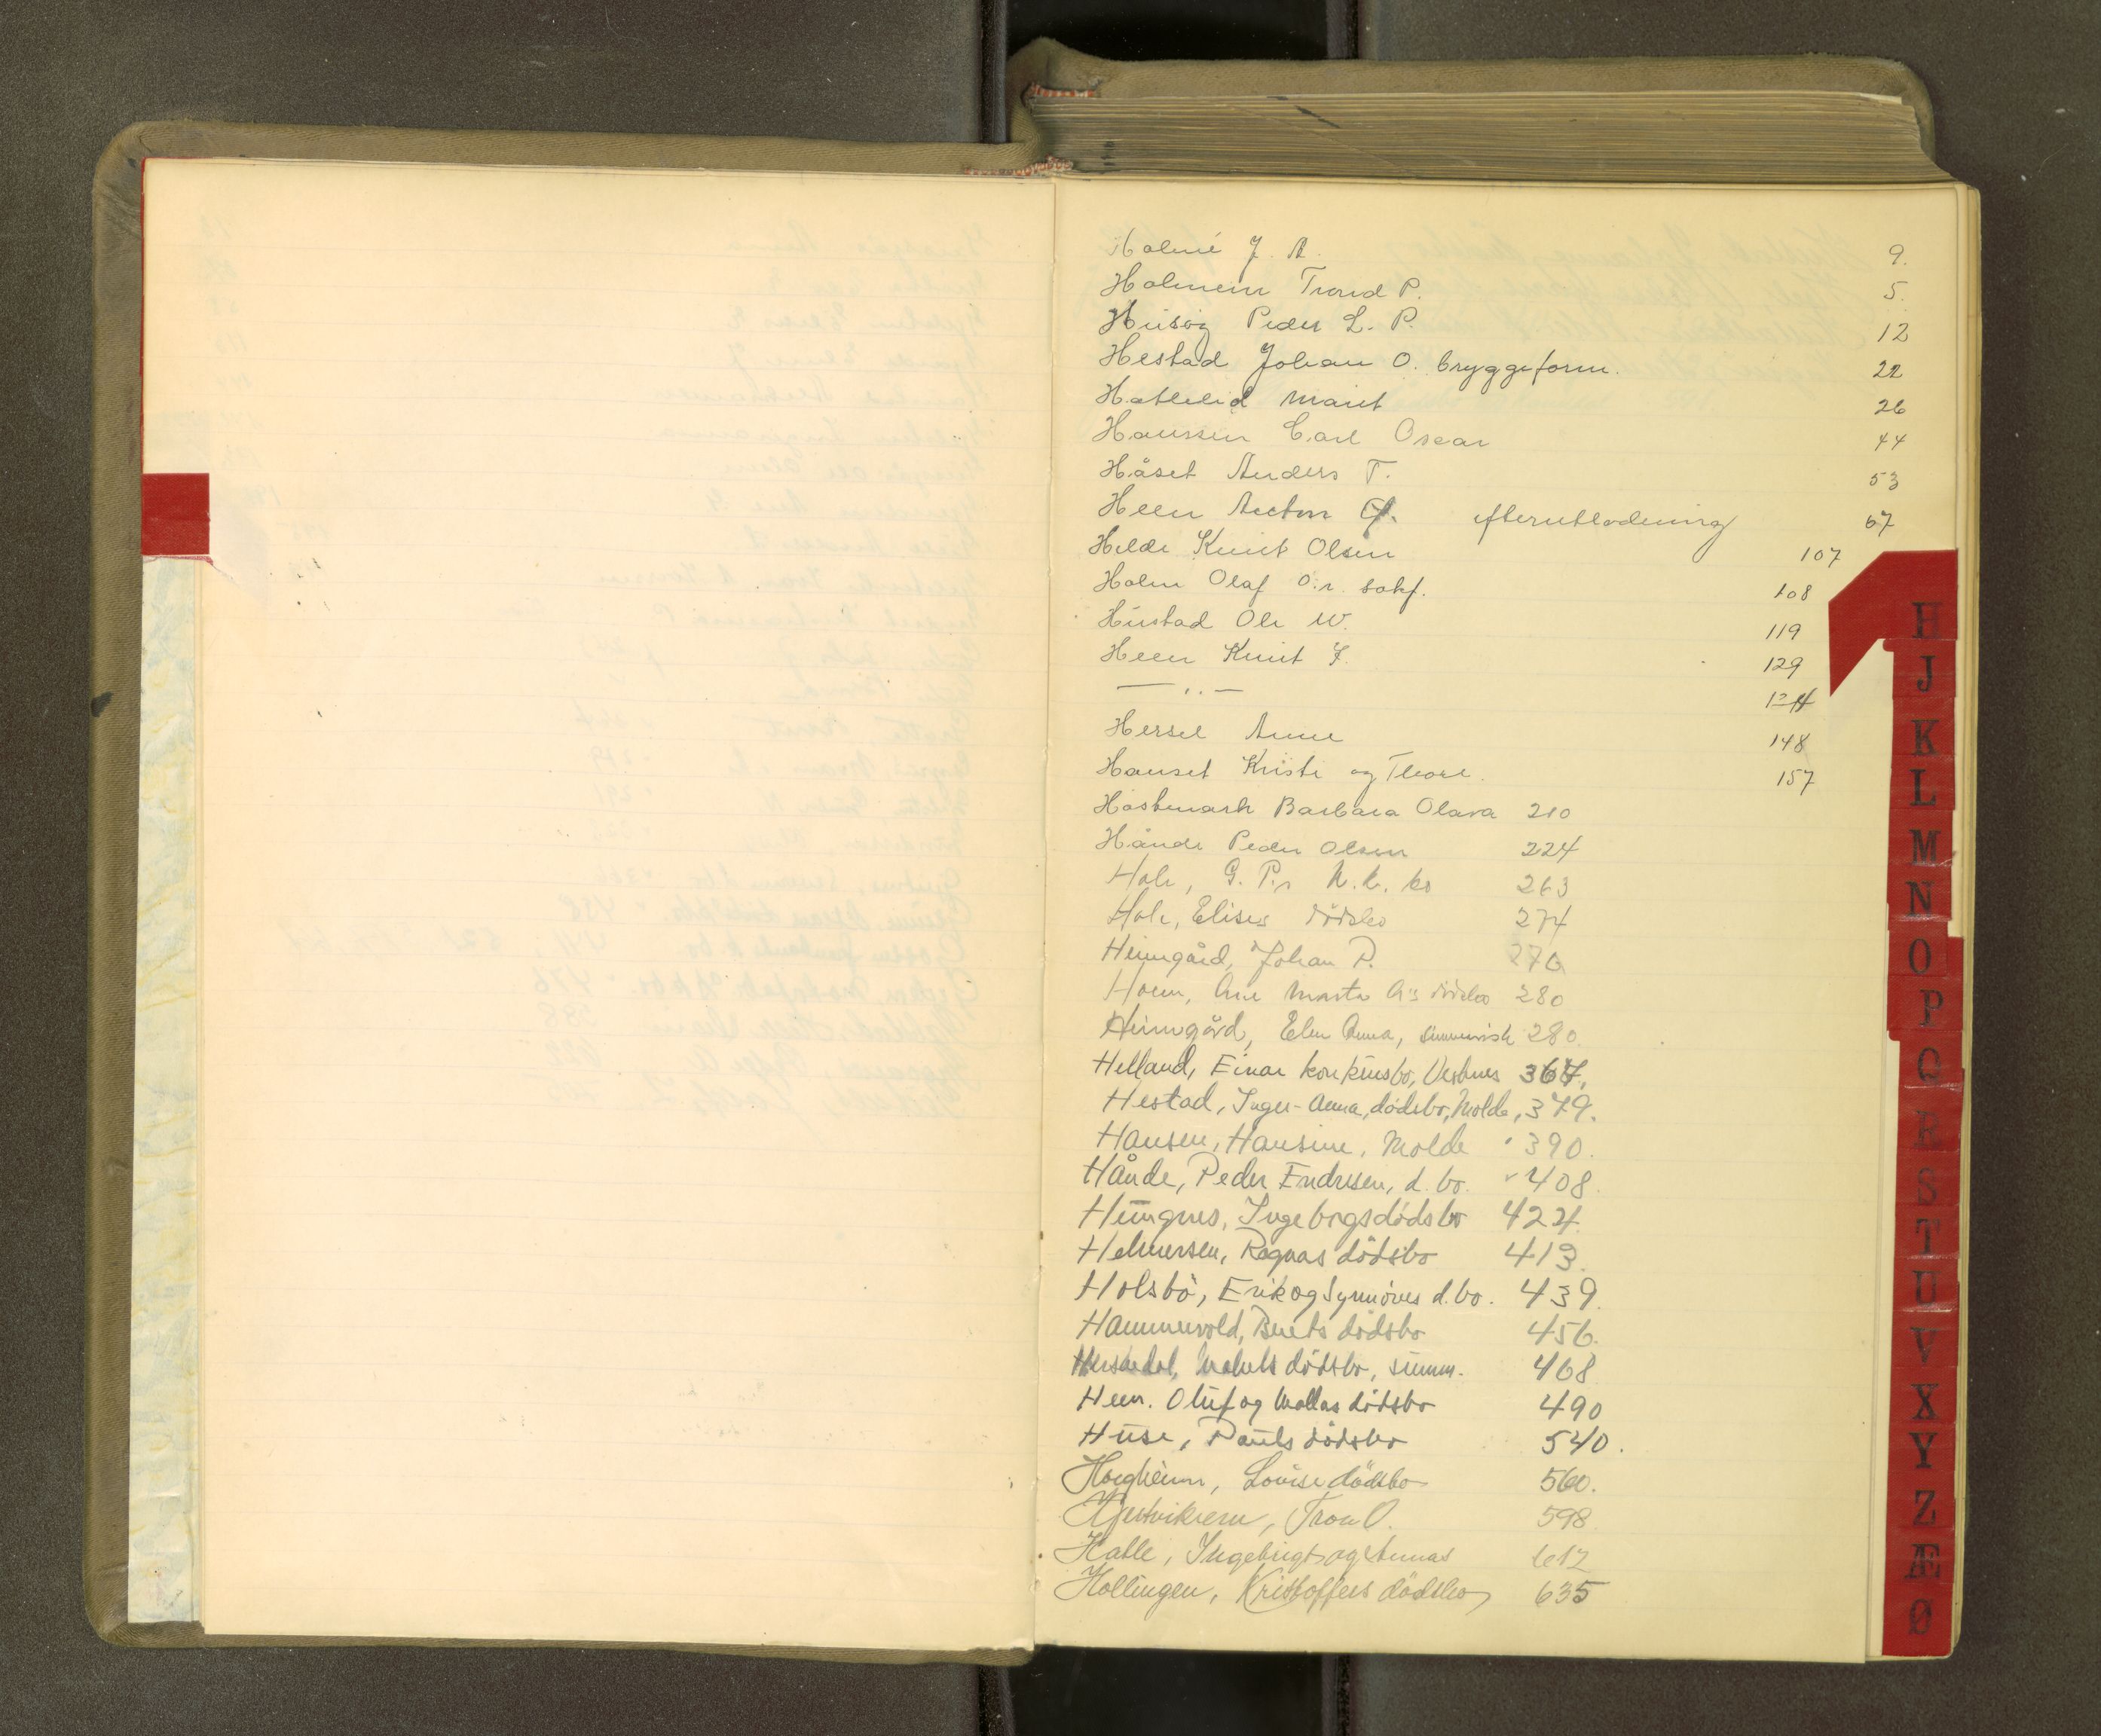 Holme J. A. 9.
Holmem Trond P. 5.
Husøy Peder L. P. 12
Hestad Johan O. bryggeform. 22
Hatlelid Marit 26
Haussen Carl Oscar 44
Håset Anders T. 53
Heen Anton efterutlodning 67
Helde Knut Olsen 107
Holm Olaf O.r. sakf. 108
Hustad Ole W. 119
Heen Knut J. 129
— „ —
Hersel Anne 148
Hauset Kristi og Thore. 157
Hostmark Barbara Olava 210
Hånde Peder Olsen 224
Hole, G. P.s K. bo 263
Hole, Elises dödsbo 274
Heimgård, Johan P. 270
Hoem, Ane Marta A's dödsbo 280
Heimgård, Elen Anna, summarisk 280.
Helland, Einar konkursbo, Vestnes 367.
Hestad, Inger-Anna, dödsbo, Molde, 379.
Hansen, Hansine, Molde " 390.
Hånde, Peder Endresen, d. bo. " 408.
Hungnes, Ingeborgs dödsbo 424.
Helmersen, Ragnas dödsbo 413.
Holsbö, Erik og Synnöves d. bo. 439.
Hammervold, Berits dödsbo 456.
dödsbo, summ. 468
Heen. Oluf og Mallas dödsbo 490
Huse, Pauls dödsbo 540.
Horgheim, Louise dödsbo 560.
Hjertvikrem, Tron O. 598
Hatle, Ingebrigt og Annas 612
Hollingen, Kristoffers dödsbo 635
H
J
K
L
M
N
O
P
Q
R
S
T
U
V
X
Y
Z
Æ
Ø